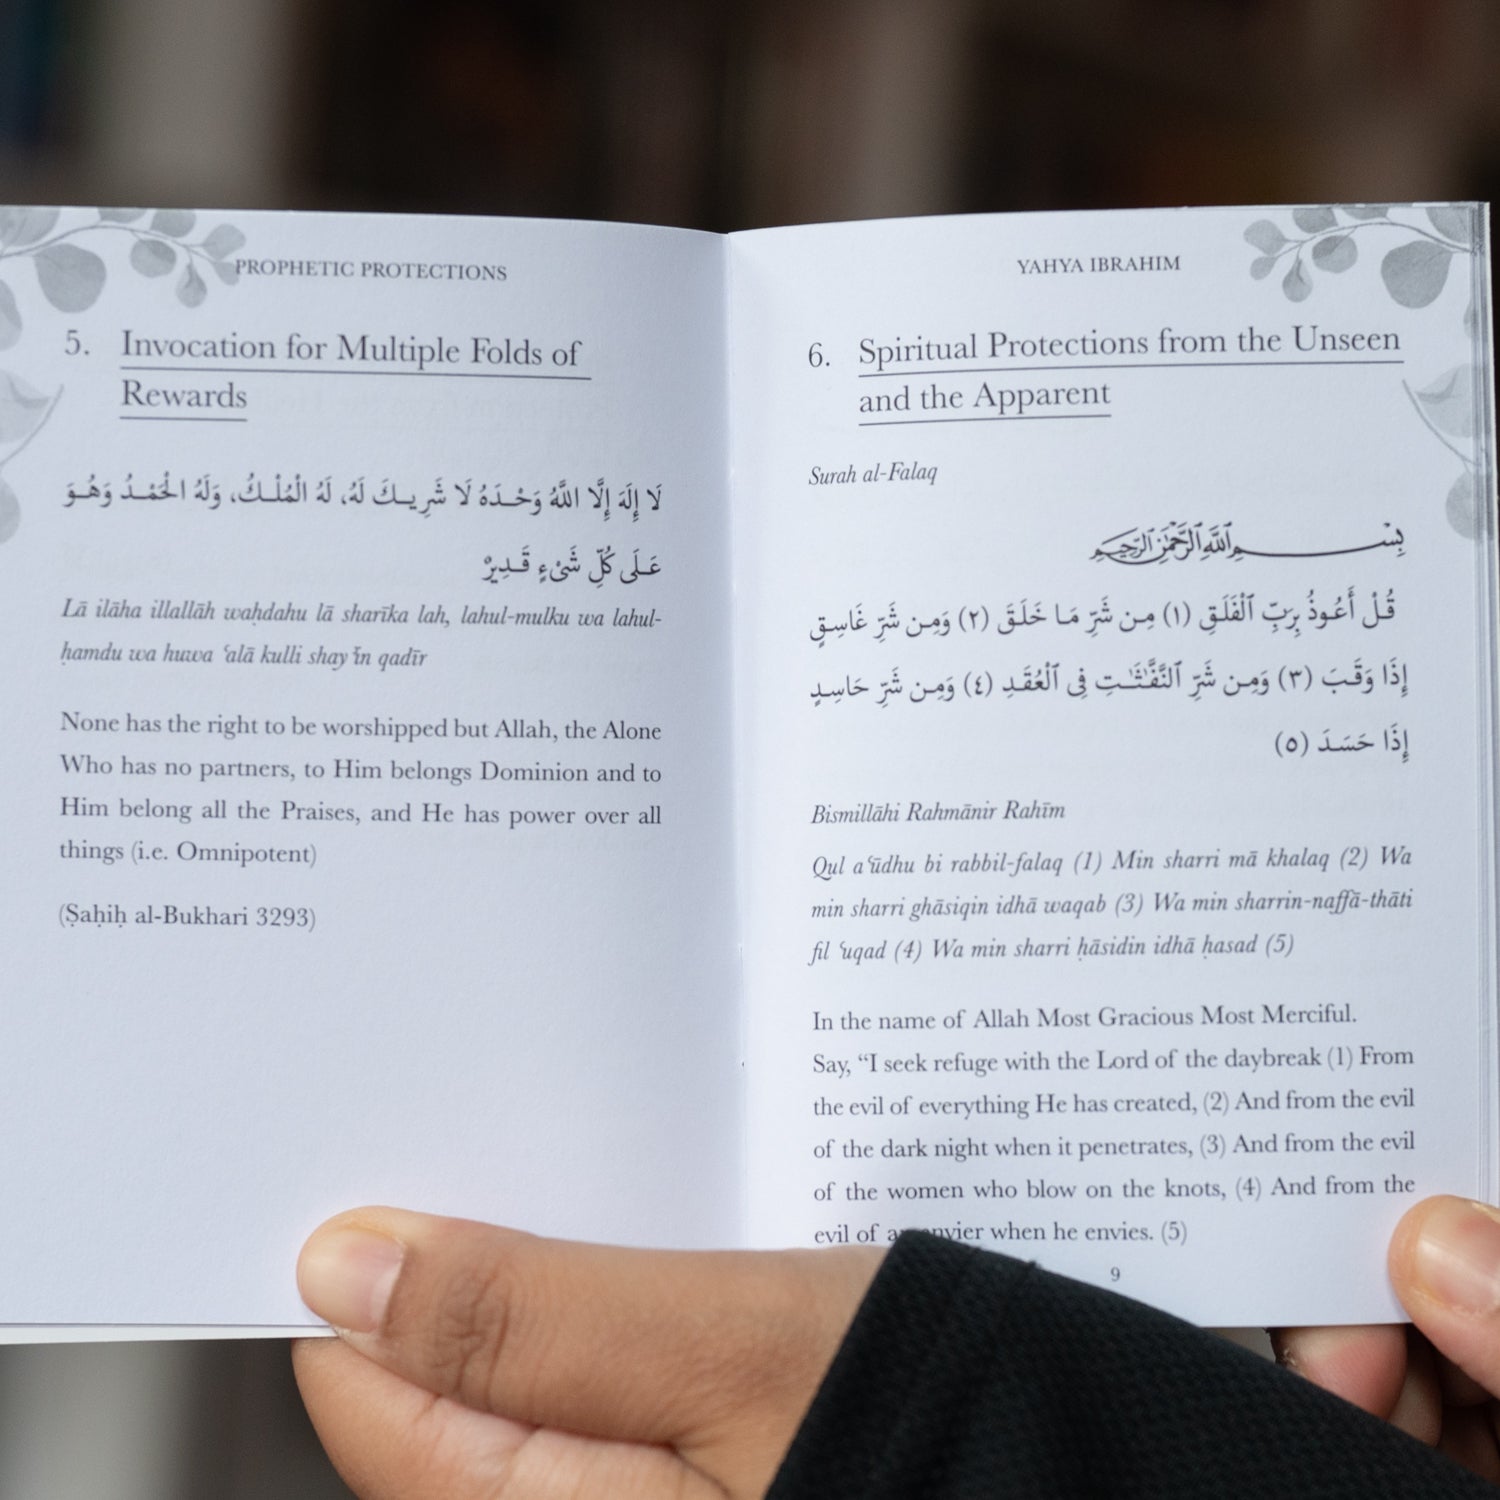 PROPHETIC PROTECTIONS
5. Invocation for Multiple Folds of
Rewards
لَا إِلَهَ إِلَّا اللَّهُ وَحْدَهُ لَا شَرِيكَ لَهُ، لَهُ الْمُلْكُ، وَلَهُ الْحَمْدُ وَهُوَ
عَلَى كُلِّ شَيْءٍ قَدِيرٌ
Lā ilāha illallāh waḥdahu lā sharīka lah, lahul-mulku wa lahul-
ḥamdu wa huwa ʿalā kulli shay ʾin qadīr
None has the right to be worshipped but Allah, the Alone
Who has no partners, to Him belongs Dominion and to
Him belong all the Praises, and He has power over all
things (i.e. Omnipotent)
(Ṣaḥiḥ al-Bukhari 3293)
YAHYA IBRAHIM
6. Spiritual Protections from the Unseen
and the Apparent
Surah al-Falaq
بِسْمِ ٱللَّهِ ٱلرَّحْمَٰنِ ٱلرَّحِيمِ
قُلْ أَعُوذُ بِرَبِّ ٱلْفَلَقِ (١) مِن شَرِّ مَا خَلَقَ (٢) وَمِن شَرِّ غَاسِقٍ
إِذَا وَقَبَ (٣) وَمِن شَرِّ ٱلنَّفَّٰثَٰتِ فِى ٱلْعُقَدِ (٤) وَمِن شَرِّ حَاسِدٍ
إِذَا حَسَدَ (٥)
Bismillāhi Rahmānir Rahīm
Qul aʿūdhu bi rabbil-falaq (1) Min sharri mā khalaq (2) Wa
min sharri ghāsiqin idhā waqab (3) Wa min sharrin-naffā-thāti
fil ʿuqad (4) Wa min sharri ḥāsidin idhā ḥasad (5)
In the name of Allah Most Gracious Most Merciful.
Say, “I seek refuge with the Lord of the daybreak (1) From
the evil of everything He has created, (2) And from the evil
of the dark night when it penetrates, (3) And from the evil
of the women who blow on the knots, (4) And from the
evil of when he envies. (5)
9